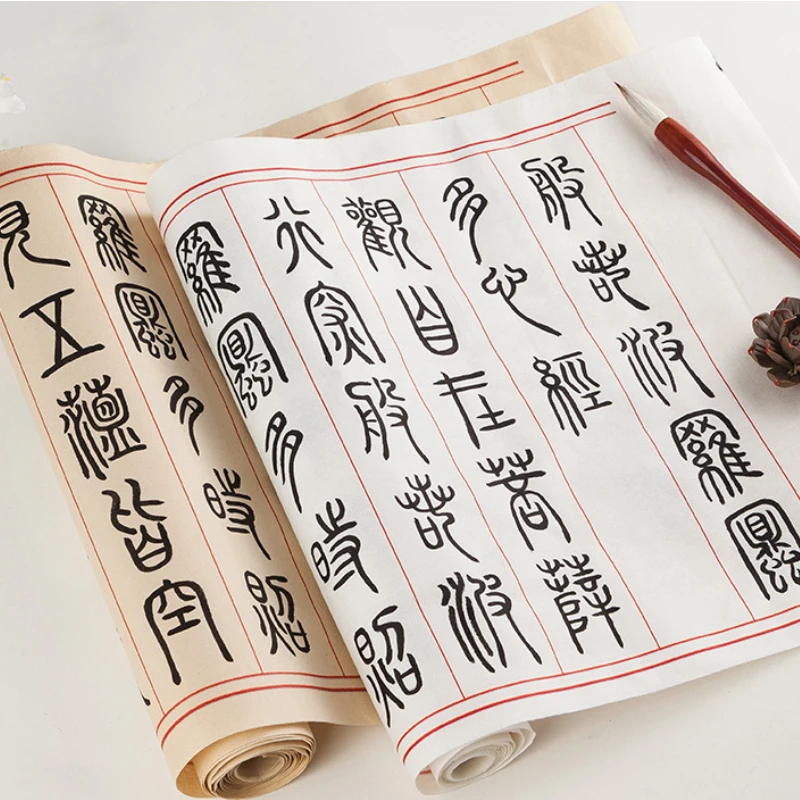 般若波羅蜜
多心經
觀自在菩薩
行深般若波
羅蜜多時照
羅蜜多時照
見五蘊皆空